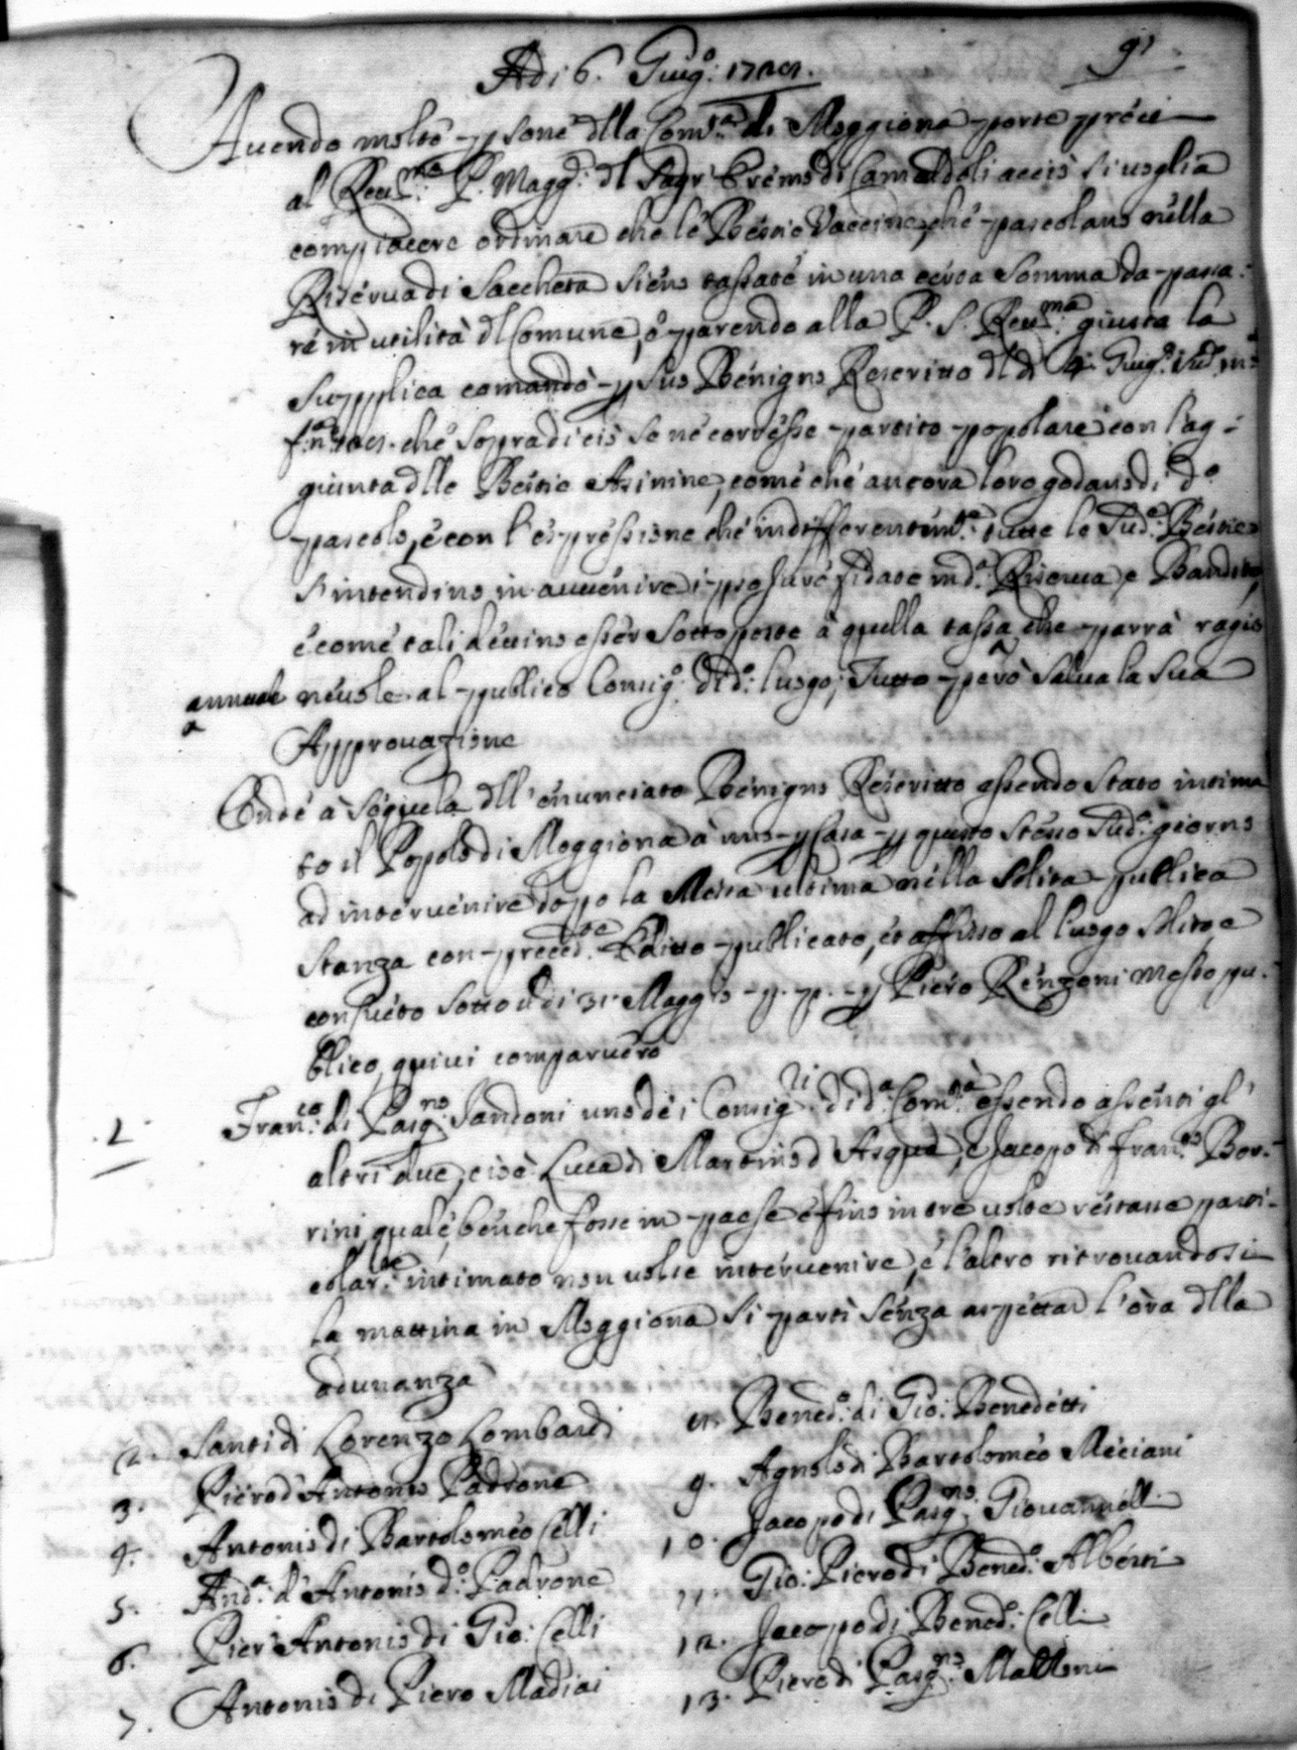 91
Adi 6. Giug.o: 1721.
Avendo molte psone dlla Com.tà di Moggiona porte preci
al Reu.mo: P. Magg.e: dl Sagr' Eremo di Camaldoli acciò si voglia
compiacere ordinare che le Bestie Vaccine, che pascolano nella
Riserva di Saccheta sieno tassate in una certa somma da passa:
re in utilità dl Comune, o parendo alla P. S. Reu.ma: giusta la
Supplica comandò p suo Benigno Rescritto dl di 4: Giug.o: sud.
che sopra di ciò se ne corresse partito popolare con l'ag:
giunta dlle Bestie Asinine, come che ancora loro godano di d.o
pascolo, e con l'espressione che indifferentem.te: tutte le Sud.e: Bestie
s'intendino in avvenire ipso jure fidate in d.a: Riserva, e Bandita,
e come tali devino esser Sottoposte à quella tassa che parrà ragio
annuale nevole al publico Consig.o: di d.o: luogo; Tutto però salva la Sua
Approvazione
Onde à sequela dll'enunciato Benigno Rescritto essendo stato intima
to il Popolo di Moggiona à uno p Casa p questo stesso Sud.o: giorno
ad intervenire doppo la Messa ultima nella solita publica
stanza con preced.te: Editto publicato, et affisso al luogo solito, e
consueto sotto il di 31. Maggio p. p. p Piero Renzoni Messo pu:
blico, quivi comparvero
1. Fran.co: di Pasq.no: Santoni uno de i Consig.ri: di d.a: Com.tà essendo assenti gl'
altri due, cioè Luca di Martino d'Asqua, e Jacopo di Fran.co: Bor:
rini, quale, benche fosse in paese e fino in tre volte restasse parti:
colar.te: intimato non volse intervenire, e l'altro ritrovandosi
la mattina in Moggiona si partì senza aspettar l'ora dlla
adunanza
2. Santi di Lorenzo Lombardi
3. Piero d'Antonio Padrone
4. Antonio di Bartolomeo Celli
5. And.a: d'Antonio d.o: Padrone
6. Pier'Antonio di Gio: Celli
7. Antonio di Piero Madiai
8. Bened.o: di Gio: Benedetti
9. Agnolo di Bartolomeo Meciani
10. Jacopo di Pasq.no: Giovannelli
11. Gio: Piero di Bened.o: Alberti
12. Jacopo di Bened.o: Celli
13. Piero di Pasq.no: Mattoni